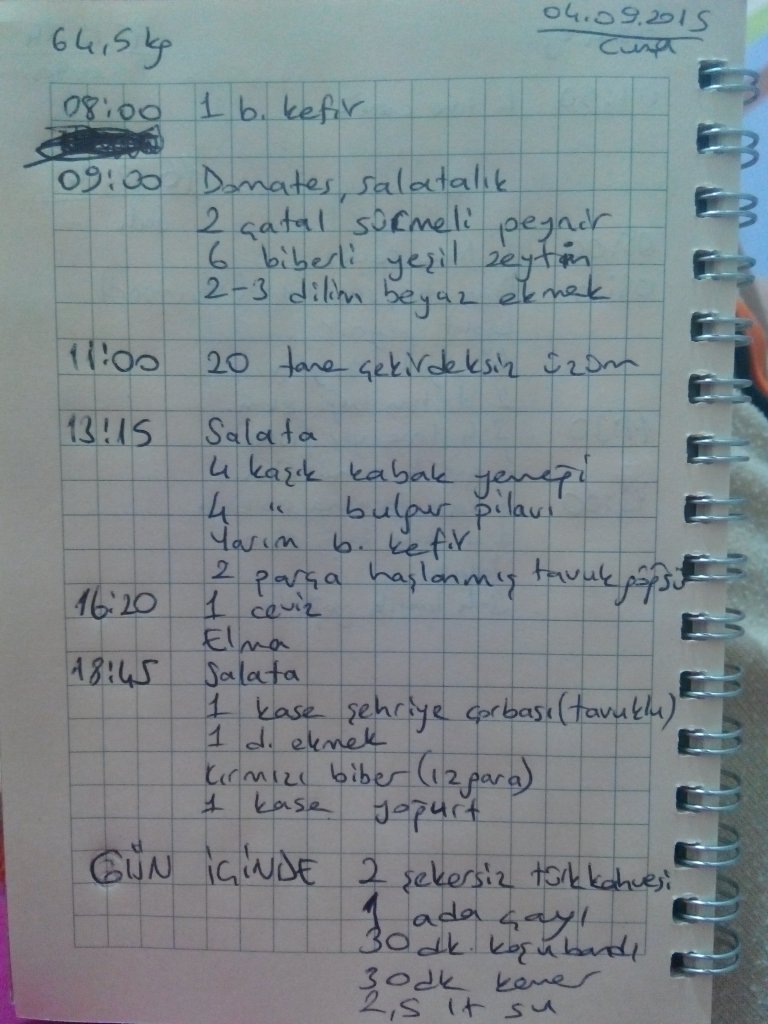 64,5 kg
04.09.2015
Cuma
08:00 1 b. kefir
09:00 Domates, salatalık
2 çatal sürmeli peynir
6 biberli yeşil zeytin
2-3 dilim beyaz ekmek
11:00 20 tane çekirdeksiz üzüm
13:15 Salata
4 kaşık kabak yemeği
4 " bulgur pilavı
Yarım b. kefir
2 parça haşlanmış tavuk göğsü
16:20 1 ceviz
Elma
18:45 Salata
1 kase şehriye çorbası (tavuklu)
1 d. ekmek
Kırmızı biber (ızgara)
1 kase yoğurt
GÜN İÇİNDE 2 şekersiz türk kahvesi
1 ada çayı
30 dk. koşu bandı
30 dk kemer
2,5 lt su